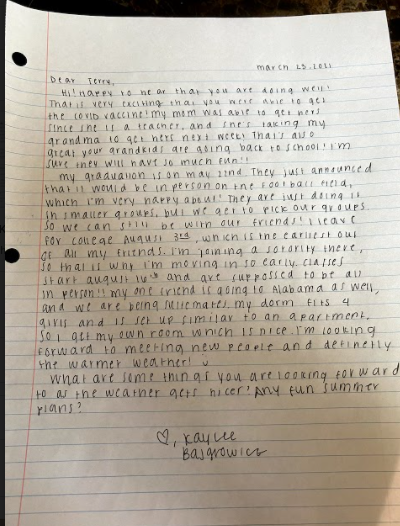 march 25, 2021
Dear Terry,
Hi! Happy to hear that you are doing well!
That is very exciting that you were able to get
the COVID vaccine! My mom was able to get hers
since she is a teacher, and she's taking my
grandma to get hers next week! That's also
great your grandkids are going back to school! I'm
sure they will have so much fun!!
My graduation is on May 22nd. They just announced
that it would be in person on the football field,
which I'm very happy about! They are just doing it
in smaller groups, but we get to pick our groups.
So we can still be with our friends! I leave
for college August 3rd, which is the earliest out
of all my friends. I'm joining a sorority there,
so that is why I'm moving in so early. Classes
start August 18th and are supposed to be all
in person!! My one friend is going to Alabama as well,
and we are being suitemates. My dorm fits 4
girls and is set up similar to an apartment,
so I get my own room which is nice. I'm looking
forward to meeting new people and definetly
the warmer weather!
What are some things you are looking forward
to as the weather gets nicer? Any fun summer
plans?
♡, Kaylee